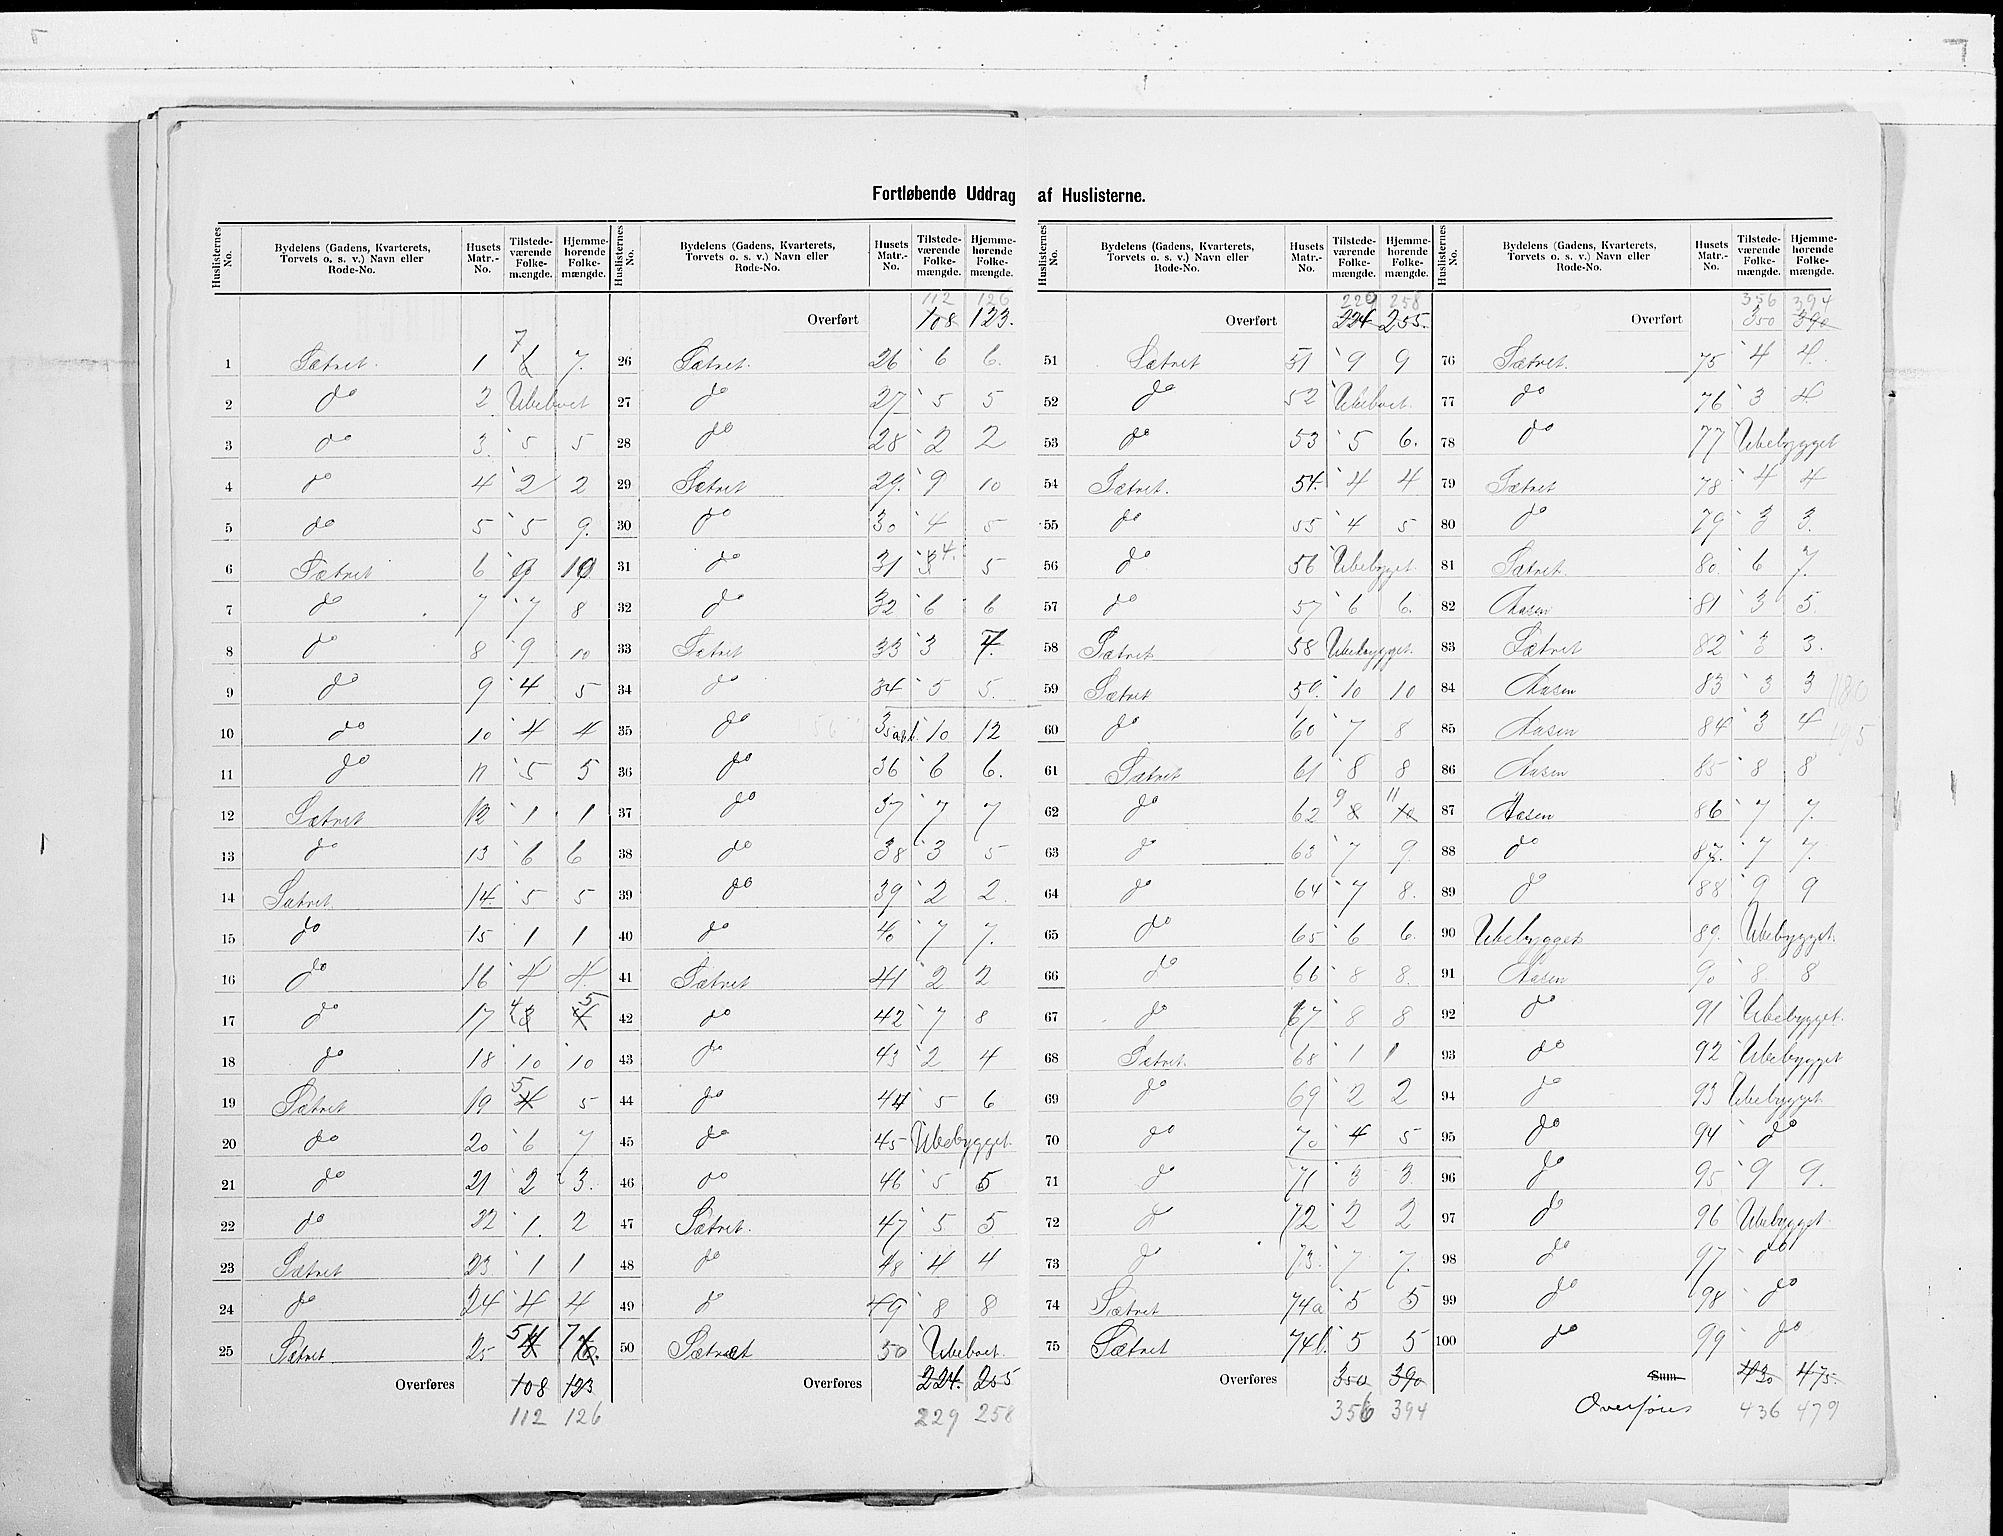 Fortløbende Uddrag af Huslisterne.
Huslisternes No. | Bydelens (Gadens, Kvarterets, Torvets o. s. v.) Navn eller Rode-No. | Husets Matr.-No. | Tilstedeværende Folkemængde. | Hjemmehørende Folkemængde.
1 Sætret. 1 6 7 7.
2 do 2 Ubeboet
3 do 3 5 5
4 do 4 2 2
5 do 5 5 9.
6 Sætret 6 9 10
7 do 7 7 8
8 do 8 9 10
9 do 9 4 5
10 do 10 4 4
11 do 11 5 5
12 Sætret 12 1 1
13 do 13 6 6
14 Sætret. 14. 5 5
15 do 15 1 1
16 do 16 4 4.
17 do 17 3 4 4 5
18 do 18 10 10
19 Sætret 19 4 5 5
20 do 20 6 7
21 do 21 2 3.
22 do 22 1. 2
23 Sætret 23. 1 1
24 do 24 4 4
25 Sætret. 25 5 7
Overføres 108 123
112 126
Huslisternes No. | Bydelens (Gadens, Kvarterets, Torvets o. s. v.) Navn eller Rode-No. | Husets Matr.-No. | Tilstedeværende Folkemængde. | Hjemmehørende Folkemængde.
112 126
Overført 108 123.
26 Sætret. 26 6 6.
27 do 27 5 5
28 do 28 2 2
29 Sætret 29. 9 10
30 do 30 4 5
31 do 31 3 4. 5
32 do 32 6 6
33 Sætret 33 3 4.
34 do 34 5 5.
35 do 35 a&b. 10 12
36 do 36 6 6.
37 do 37 7 7
38 do 38 3 5
39 do 39 2 2.
40 do 40 7 7.
41 Sætret 41 2 2
42 do 42 7 8
43 do 43 2 4
44 do 44 5 6
45 do 45 Ubebygget.
46 do 46 5 5
47 Sætret. 47 5 5
48 do 48 4 4
49 do 49 8 8
50 Sætret 50 Ubeboet.
Overføres 224. 255
229 258
Huslisternes No. | Bydelens (Gadens, Kvarterets, Torvets o. s. v.) Navn eller Rode-No. | Husets Matr.-No. | Tilstedeværende Folkemængde. | Hjemmehørende Folkemængde.
229 258
Overført 224 255.
51 Sætret 51 9 9
52 do 52 Ubeboet.
53 do 53 5 6.
54 Sætret. 54. 4 4
55 do 55 4 5
56 do 56 Ubebygget.
57 do 57 6 6.
58 Sætret 58 Ubebygget.
59 Sætret 59. 10 10
60 do 60 7 8
61 Sætret 61 8 8
62 do 62 8 9 10 11
63 do 63 7 9.
64 do 64 7 8.
65 do 65 6 6.
66 do 66 8 8.
67 do 67 8 8
68 Sætret. 68 1 1
69 do 69 2 2
70 do 70 4 5
71 do 71 3 3.
72 do 72 2 2
73 do 73. 7 7.
74 Sætret 74a 5 5
75 Sætret 74b. 5 5
Overføres 350 390
356 394
Huslisternes No. | Bydelens (Gadens, Kvarterets, Torvets o. s. v.) Navn eller Rode-No. | Husets Matr.-No. | Tilstedeværende Folkemængde. | Hjemmehørende Folkemængde.
356 394
Overført 350 390
76 Sætret. 75 4 4.
77 do 76 3 4.
78 do 77 Ubebygget
79 Sætret 78 4 4
80 do 79 3 3.
81 Sætret. 80. 6 7.
82 Aasen 81 3 5.
83 Sætret 82 3 3.
84 Aasen 83 3 3
85 Aasen 84 3 4
86 Aasen 85 8 8
87 Aasen 86 7 7.
88 do 87. 7 7.
89 do 88 9 9
90 Ubebygget 89. Ubebygget.
91 Aasen 90 8. 8
92 do 91 Ubebygget.
93 do 92 Ubebygget
94 do 93 Ubebygget.
95 do 94 do
96 do 95 9 9.
97 do 96 Ubebygget.
98 do 97 do
99 do 98 do
100 do 99 do
Sum 430 475.
Overføres 436 479